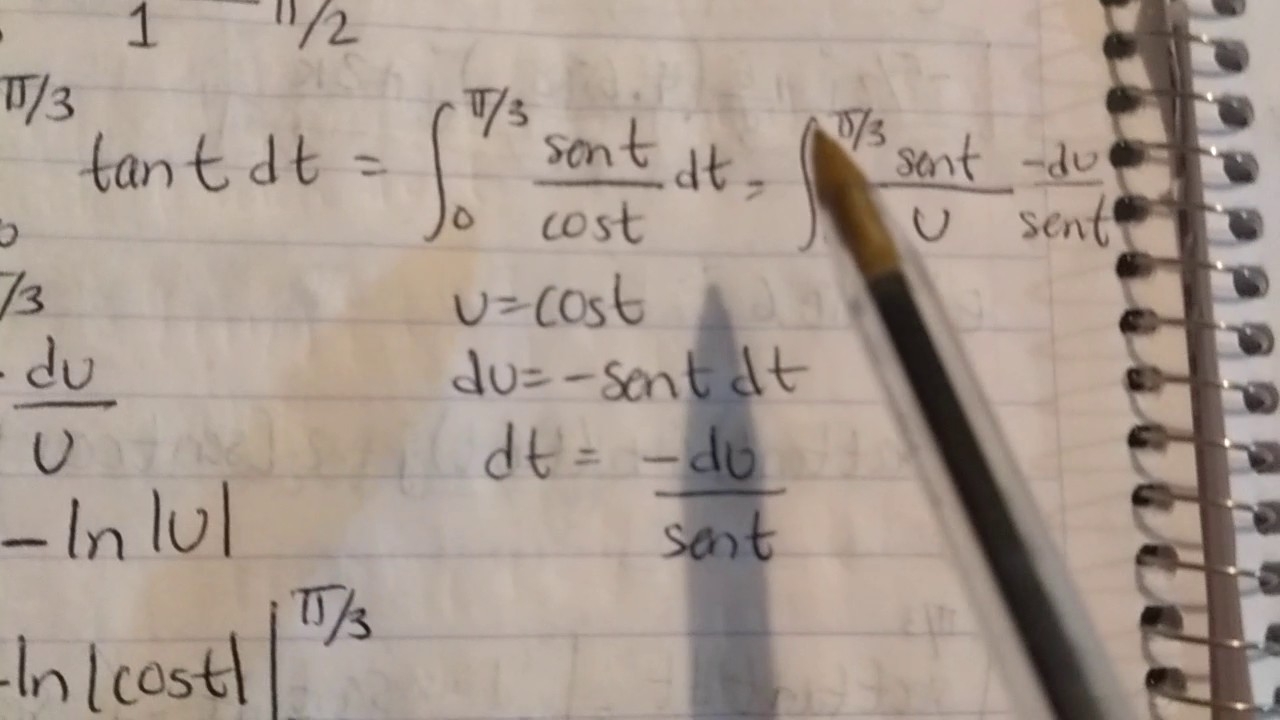 1 π/2
π/3
tant dt = ∫₀^π/3 sent/cost dt = ∫^π/3 sent/u -du/sent
0
π/3 u=cost
- du/u du=-sent dt
dt = -du/sent
-ln|u|
-ln|cost| |^π/3